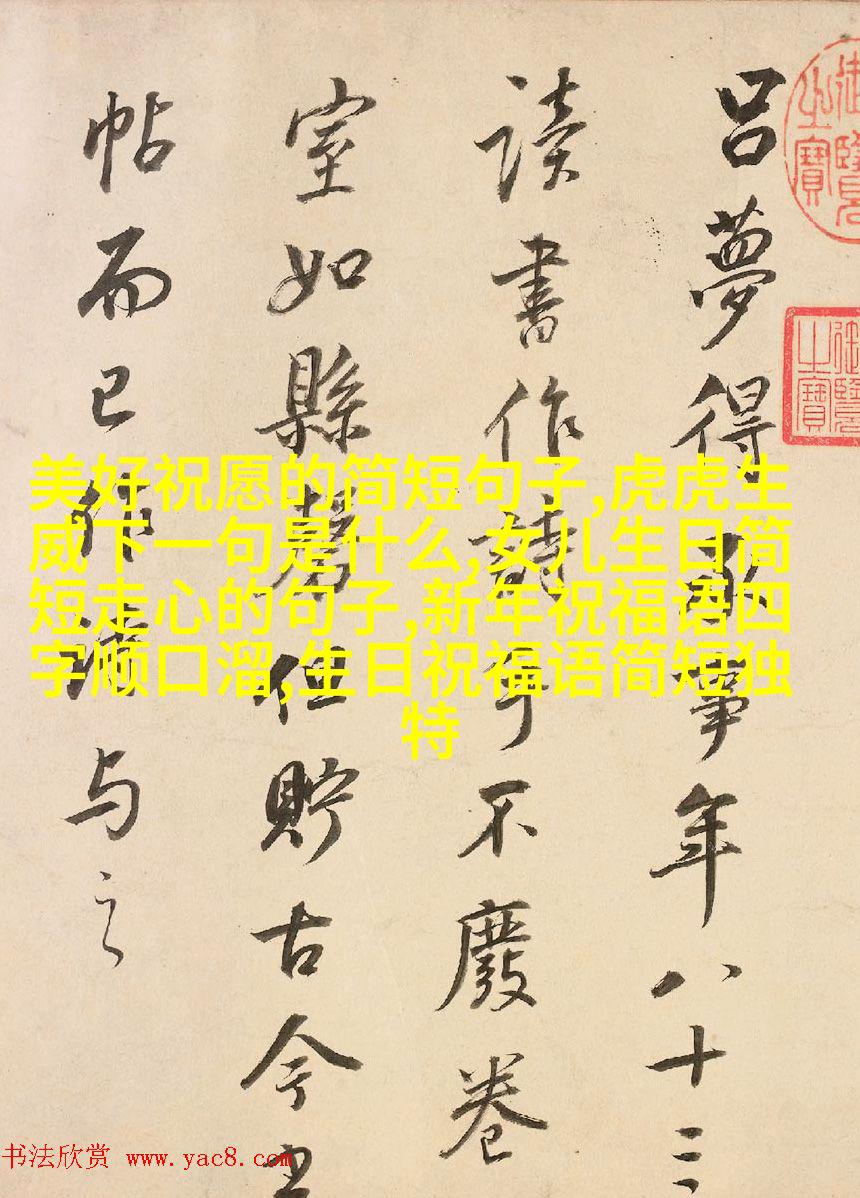 御覽之寶
御覽之寶
呂夢得承事年八十三
讀書作詩手不廢卷
室如縣罄但貯古今
帖而已作詩与之
美好祝愿的简短句子,虎虎生
威下一句是什么,女儿生日简
短走心的句子,新年祝福语四
字顺口溜,生日祝福语简短独
特
书法欣赏 www.yac8.com